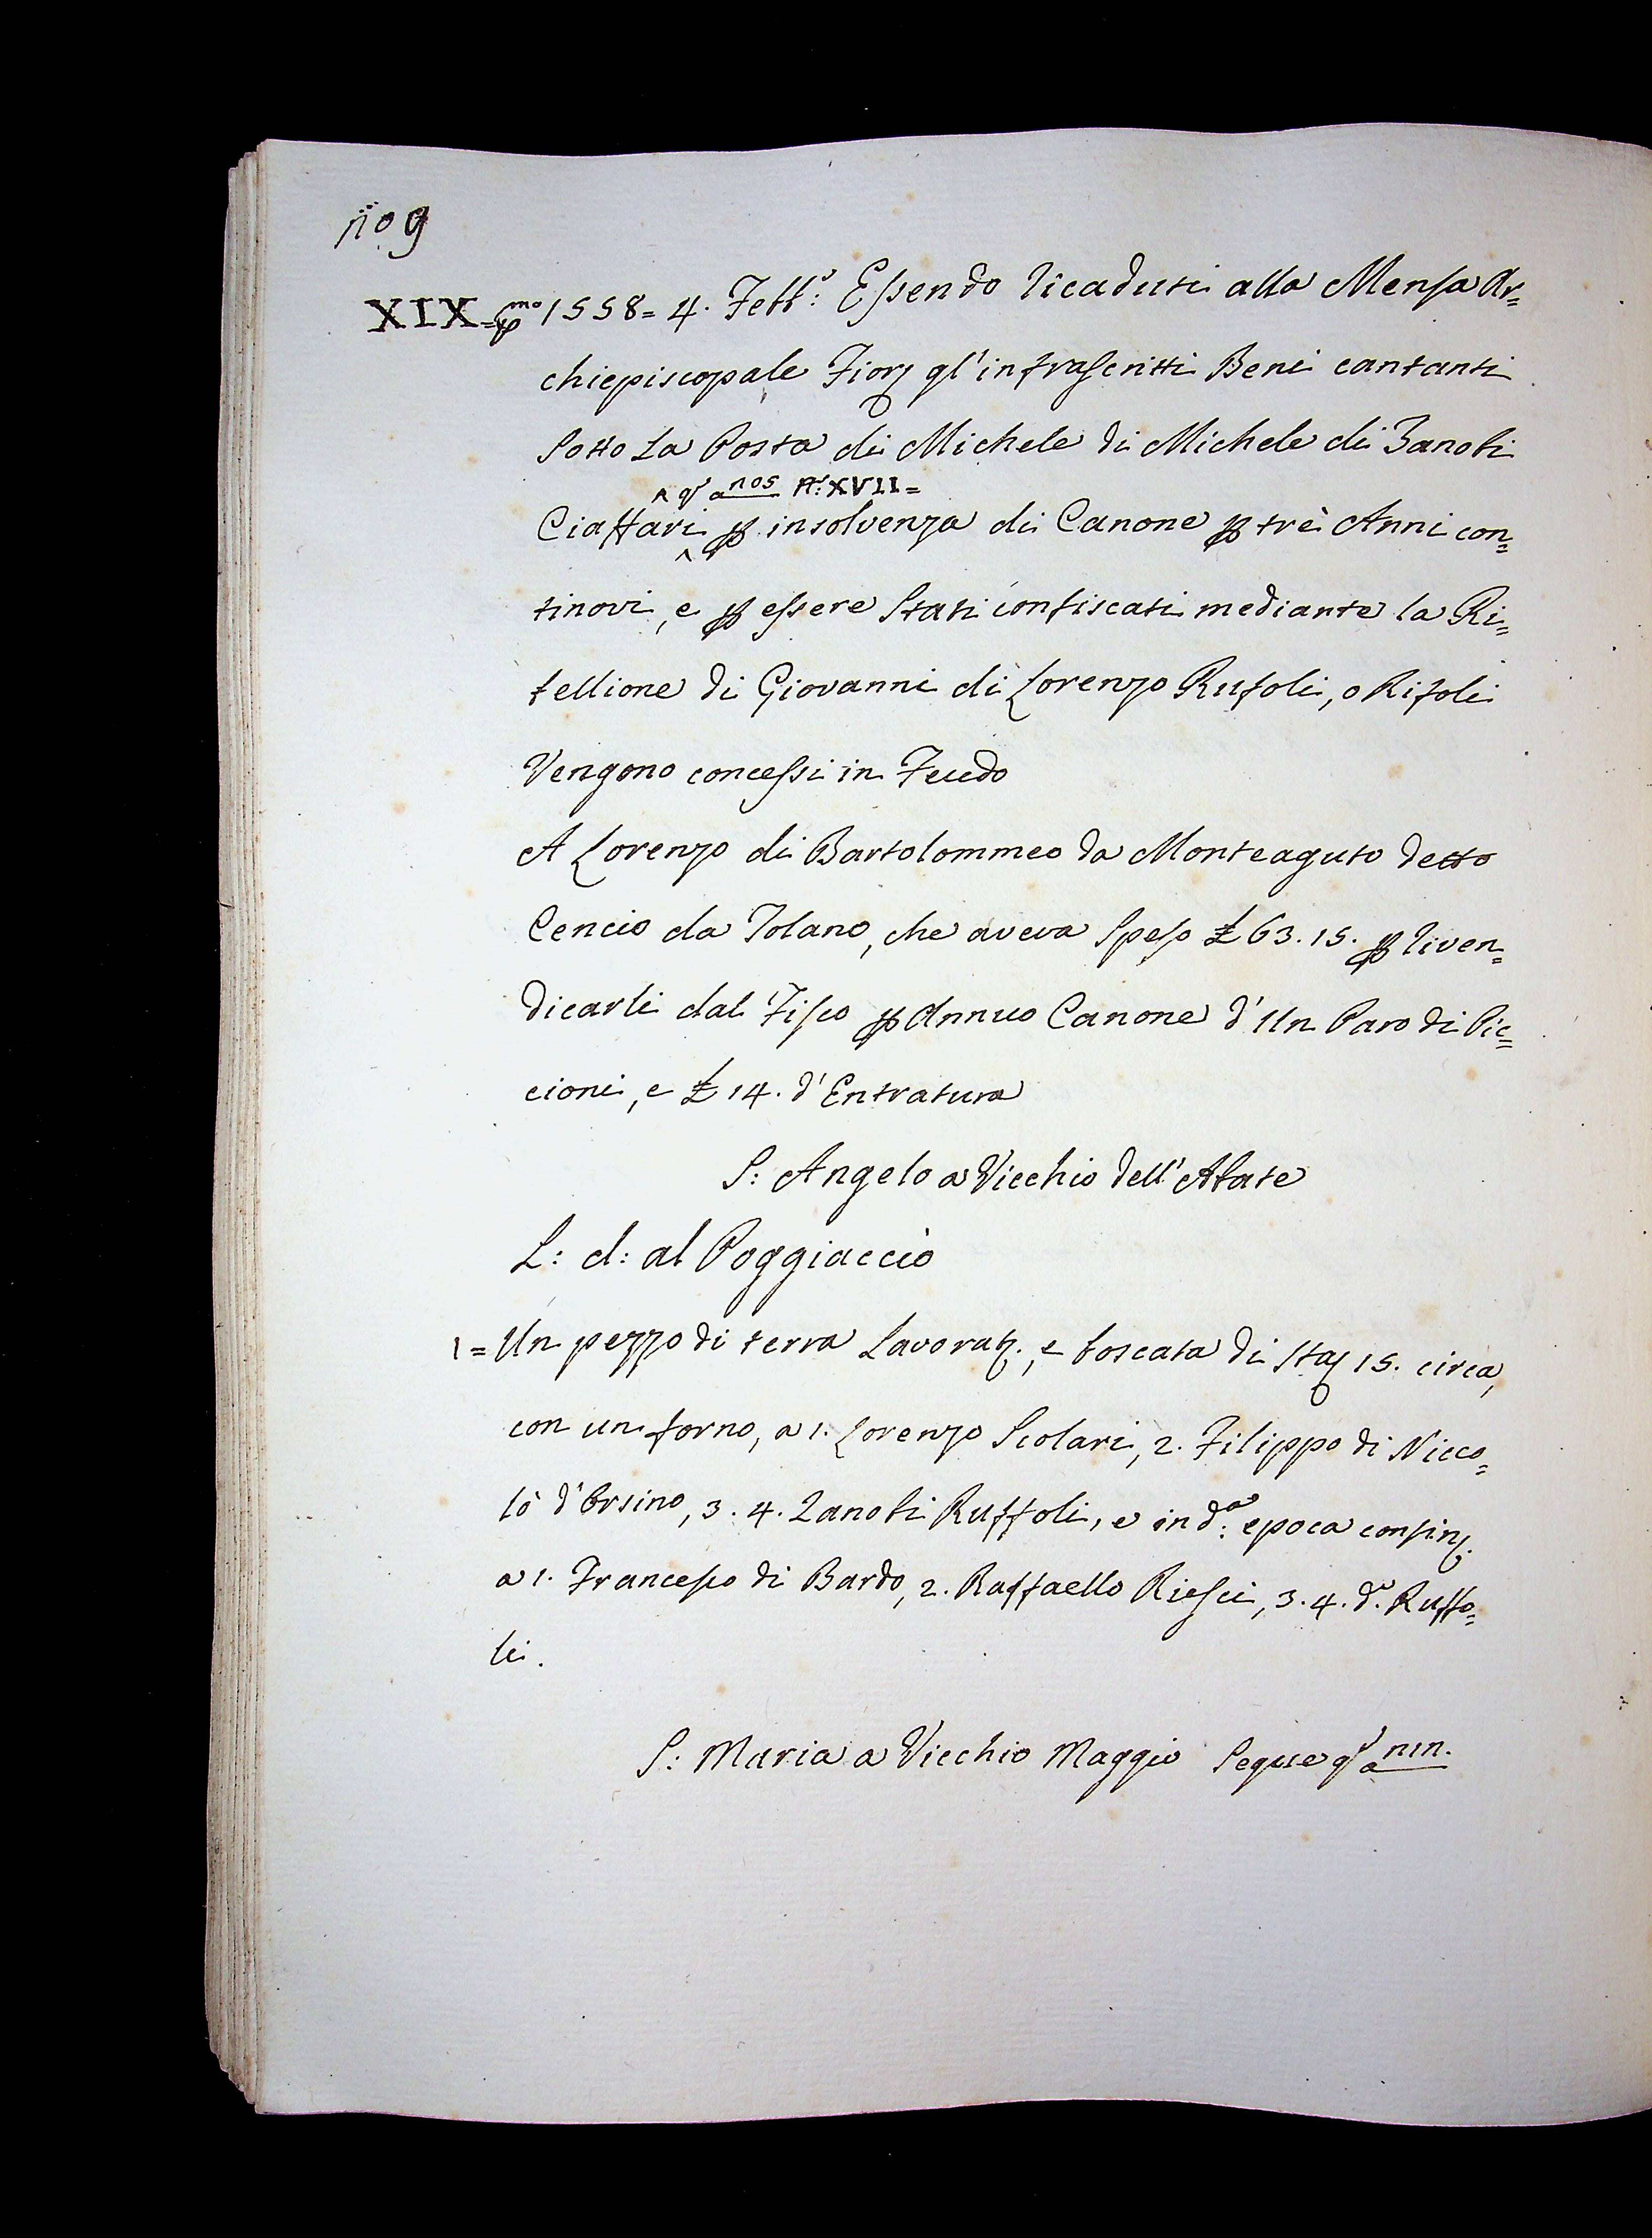 1109
XIX = pmo 1558 = 4. Febb:o Essendo ricaduti alla Mensa Ar=
chiepiscopale Fior: gl'infrascritti Beni cantanti
sotto la Posta di Michele di Michele di Zanobi
^ q.o a nos N:o XVII =
Ciaffari ^ p insolvenza di Canone p trè Anni con=
tinovi, e p essere stati confiscati mediante la Ri=
bellione di Giovanni di Lorenzo Rufoli, o Rifoli
Vengono concessi in Feudo
A Lorenzo di Bartolommeo da Monteaguto detto
Cencio da Tolano, che aveva speso £ 63.15. p riven=
dicarli dal Fisco p Annuo Canone d'Un Paro di Pic=
cioni, e £ 14. d'Entratura
S: Angelo a Vicchio dell'Abate
L: d: al Poggiaccio
1 = Un pezzo di terra Lavorat:, e boscata di Sta: 15. circa,
con un forno, a 1. Lorenzo Scolari, 2. Filippo di Nicco=
lò d'Orsino, 3. 4. Zanobi Ruffoli, e in d:a epoca confin:
a 1. Francesco di Bardo, 2. Raffaello Riesci, 3. 4. d.o Ruffo=
li.
S: Maria a Vicchio Maggio Segue q.o a n1n.